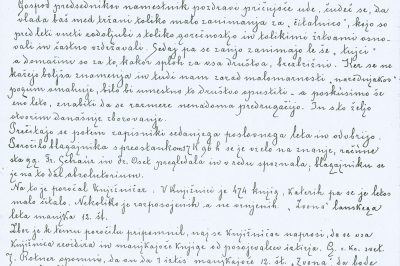 Gospod predsednikov namestnik pozdravi pričujoče ude, čudeč se, da
vlada baš med tržani toliko malo zanimanja za „čitalnico", kojo so
pred leti vneti rodoljubi s toliko gorečnostjo in tolikimi žrtvami osno-
vali in častno vzdrževali. Sedaj pa se zanjo zanimajo le še „tujci"
a domačini so za to, kakor sploh za vsa društva, brezbrižni. Ker se ne
kažejo boljša znamenja in tudi nam zarad malomarnosti „narodnjakov"
pogum omahuje, bilo bi umestno to društvo opustiti – a poskusimo še
eno leto, znabiti da se razmere nenadoma predrugačijo. In s to željo
otvorim današnje zborovanje.
Prečitajo se potem zapisniki sedanjega poslovnega leta in odobrijo.
Poročilo blagajnika s preostankom 57 K 98 h se je vzelo na znanje, račune
sta gg. in dr. Oset pregledala in v redu spoznala, blagajniku se
je na to dal absolutorium.
Na to je poročal knjižničar. V knjižnici je 474 knjig, katerih pa se je letos
malo čitalo. Nekoliko je razposojenih a ne vrnjenih. „Zvona" lanskega
leta manjka 12. št.
Zbor je k temu poročilu pripomnil, naj se knjižničar naprosi, da se vsa
knjižnica revidira in manjkajoče knjige od posojevalcev iztirja. G. c. kr. svet.
J. Rotner opomni, da on da 1 iztis manjkajoče 12. št. „Zvona", da bode